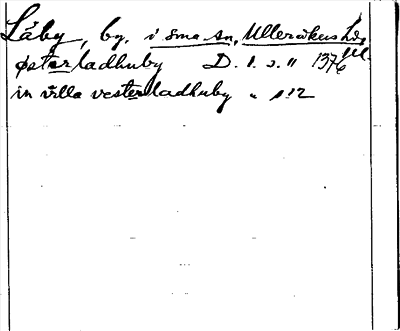 Låby, by, i sma sn, Ulleråkers hd,
Ul.
østerladhuby D. 1. s. 11 1376
in villa vesterladhuby " s 12